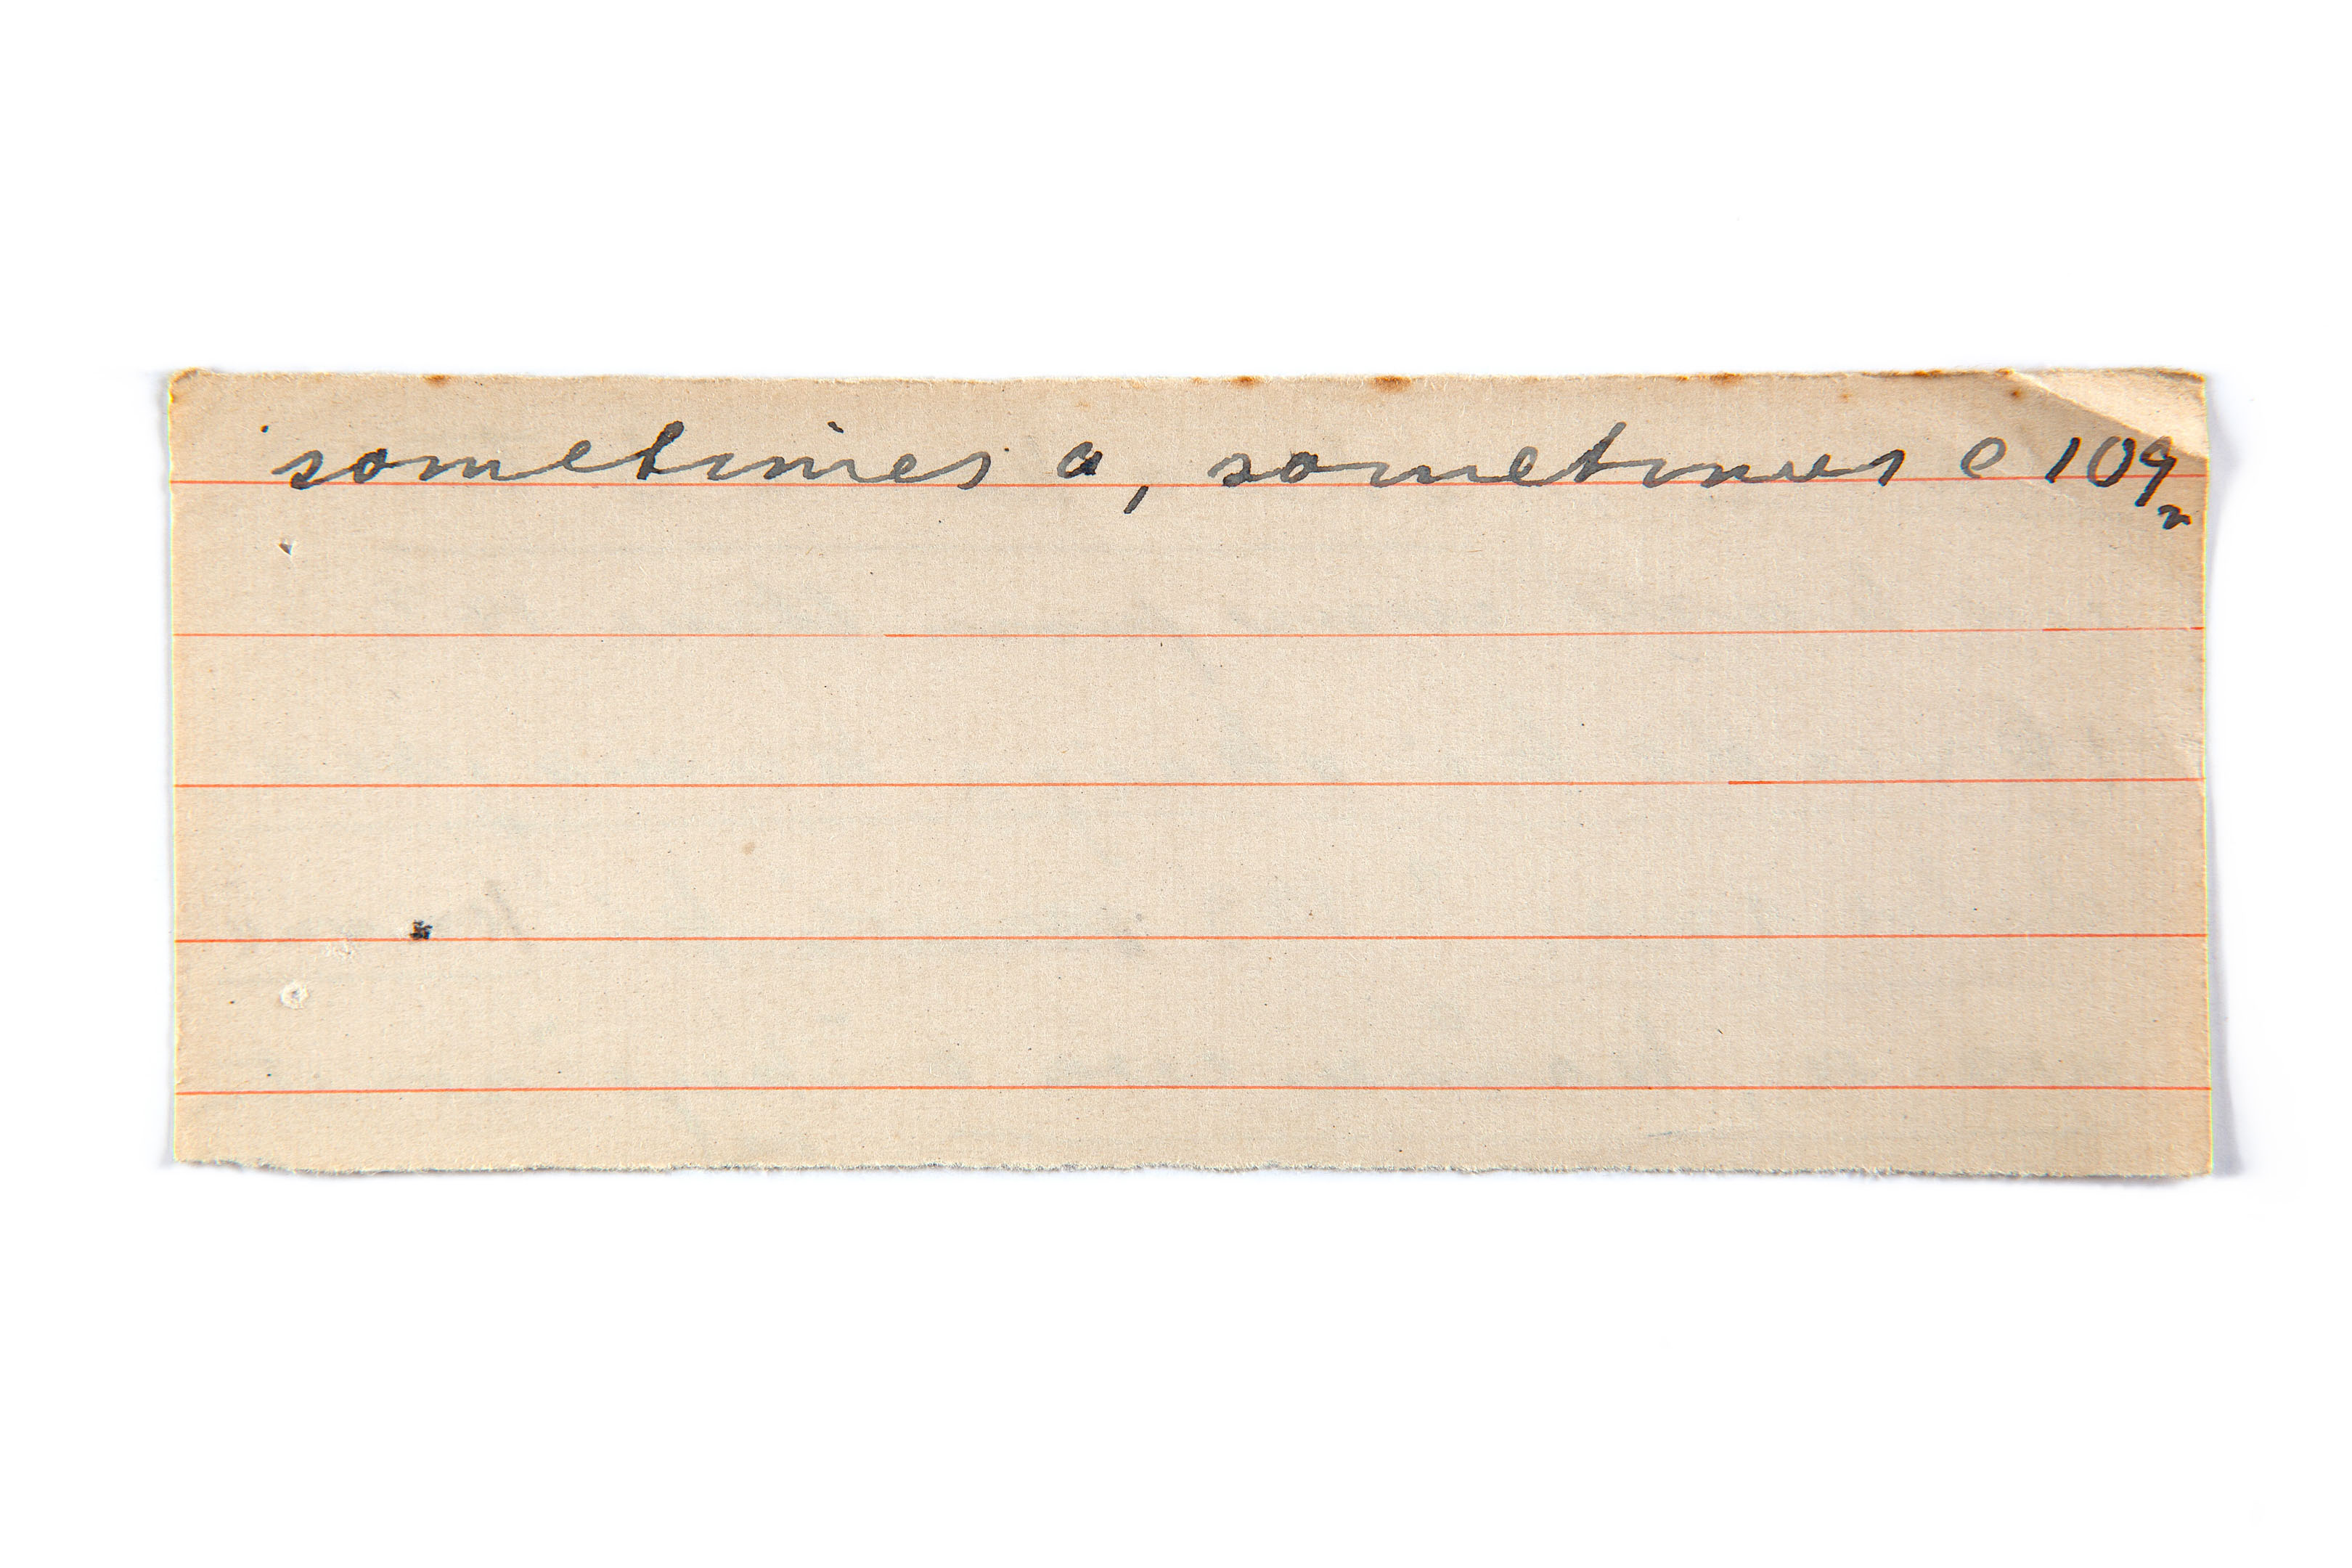 sometimes a, sometimes e 109
n